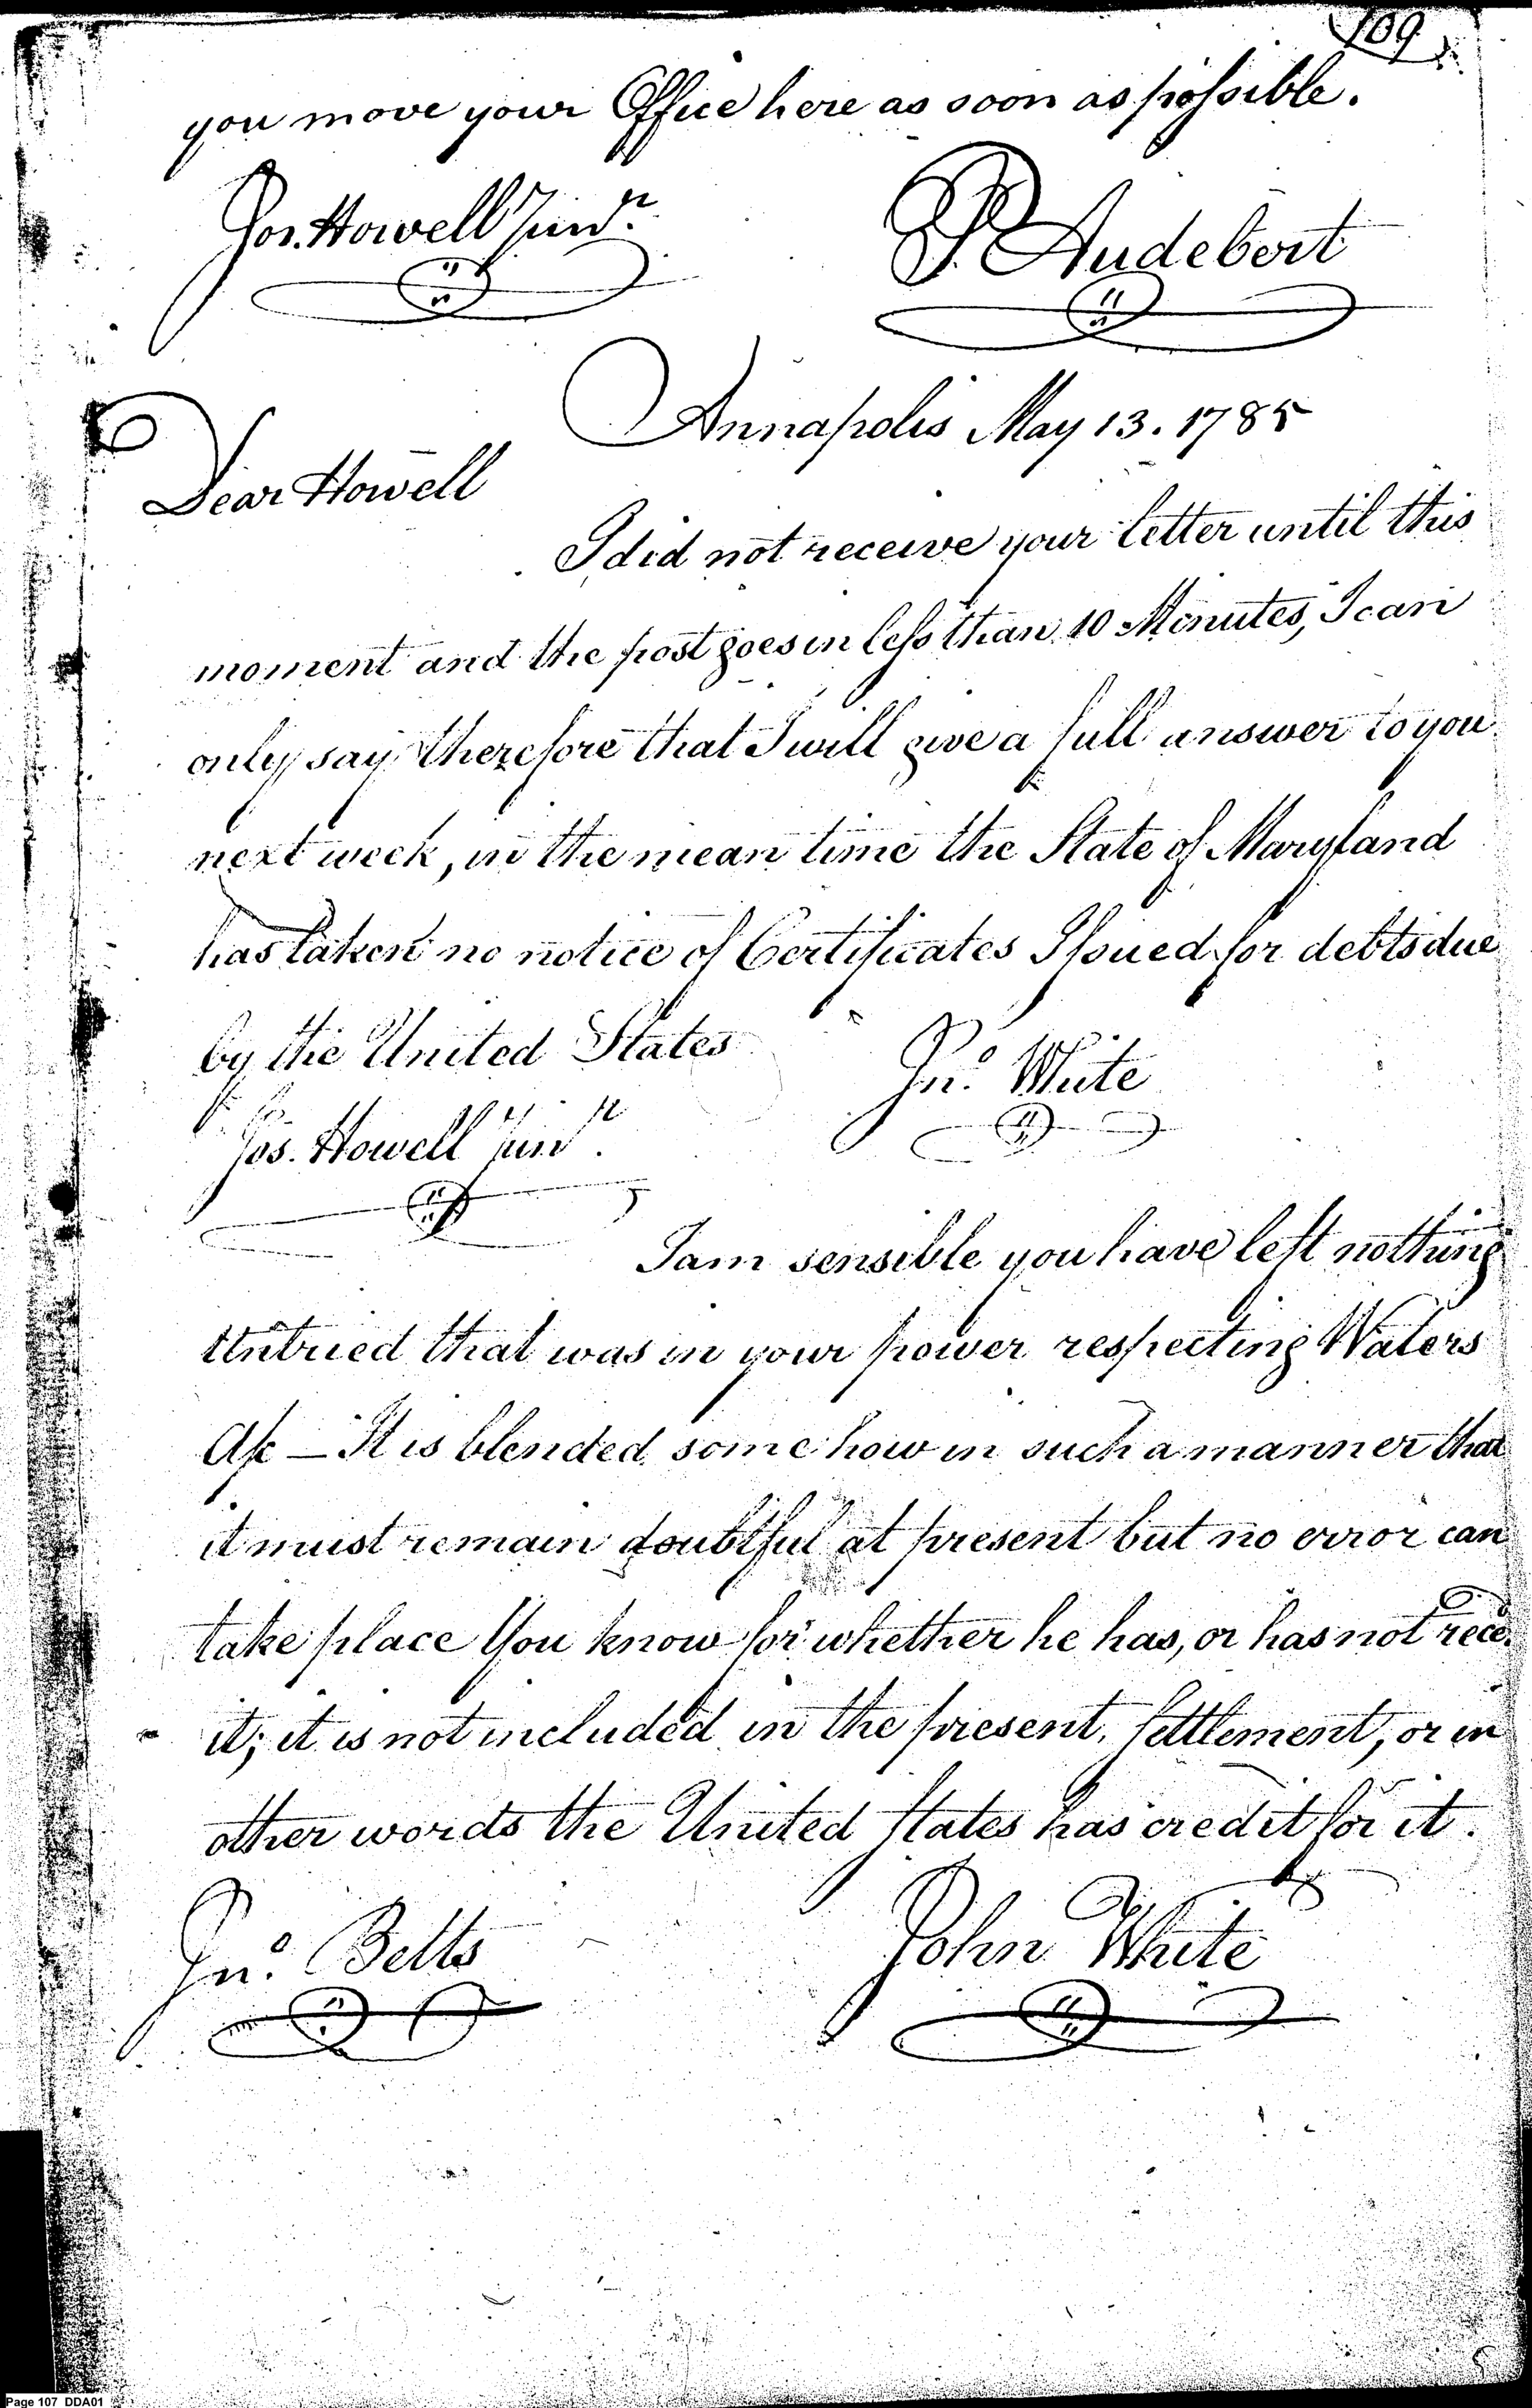 109
you move your Office here as soon as possible.
Jos. Howell Junr.
P. Audebert
Annapolis May 13. 1785
Dear Howell
I did not receive your letter until this
moment and the post goes in less than 10 Minutes, I can
only say therefore that I will give a full answer to you
next week, in the mean time the State of Maryland
has taken no notice of Certificates Issued for debts due
by the United States
Jno. White
Jos. Howell Junr.
I am sensible you have left nothing
Untried that was in your power respecting Waters
A/c — It is blended some how in such a manner that
it must remain doubtful at present but no error can
take place You know for whether he has, or has not rece.d
it; it is not included in the present Settlement, or in
other words the United States has credit for it.
Jno. Betts
John White
Page 107 DDA01